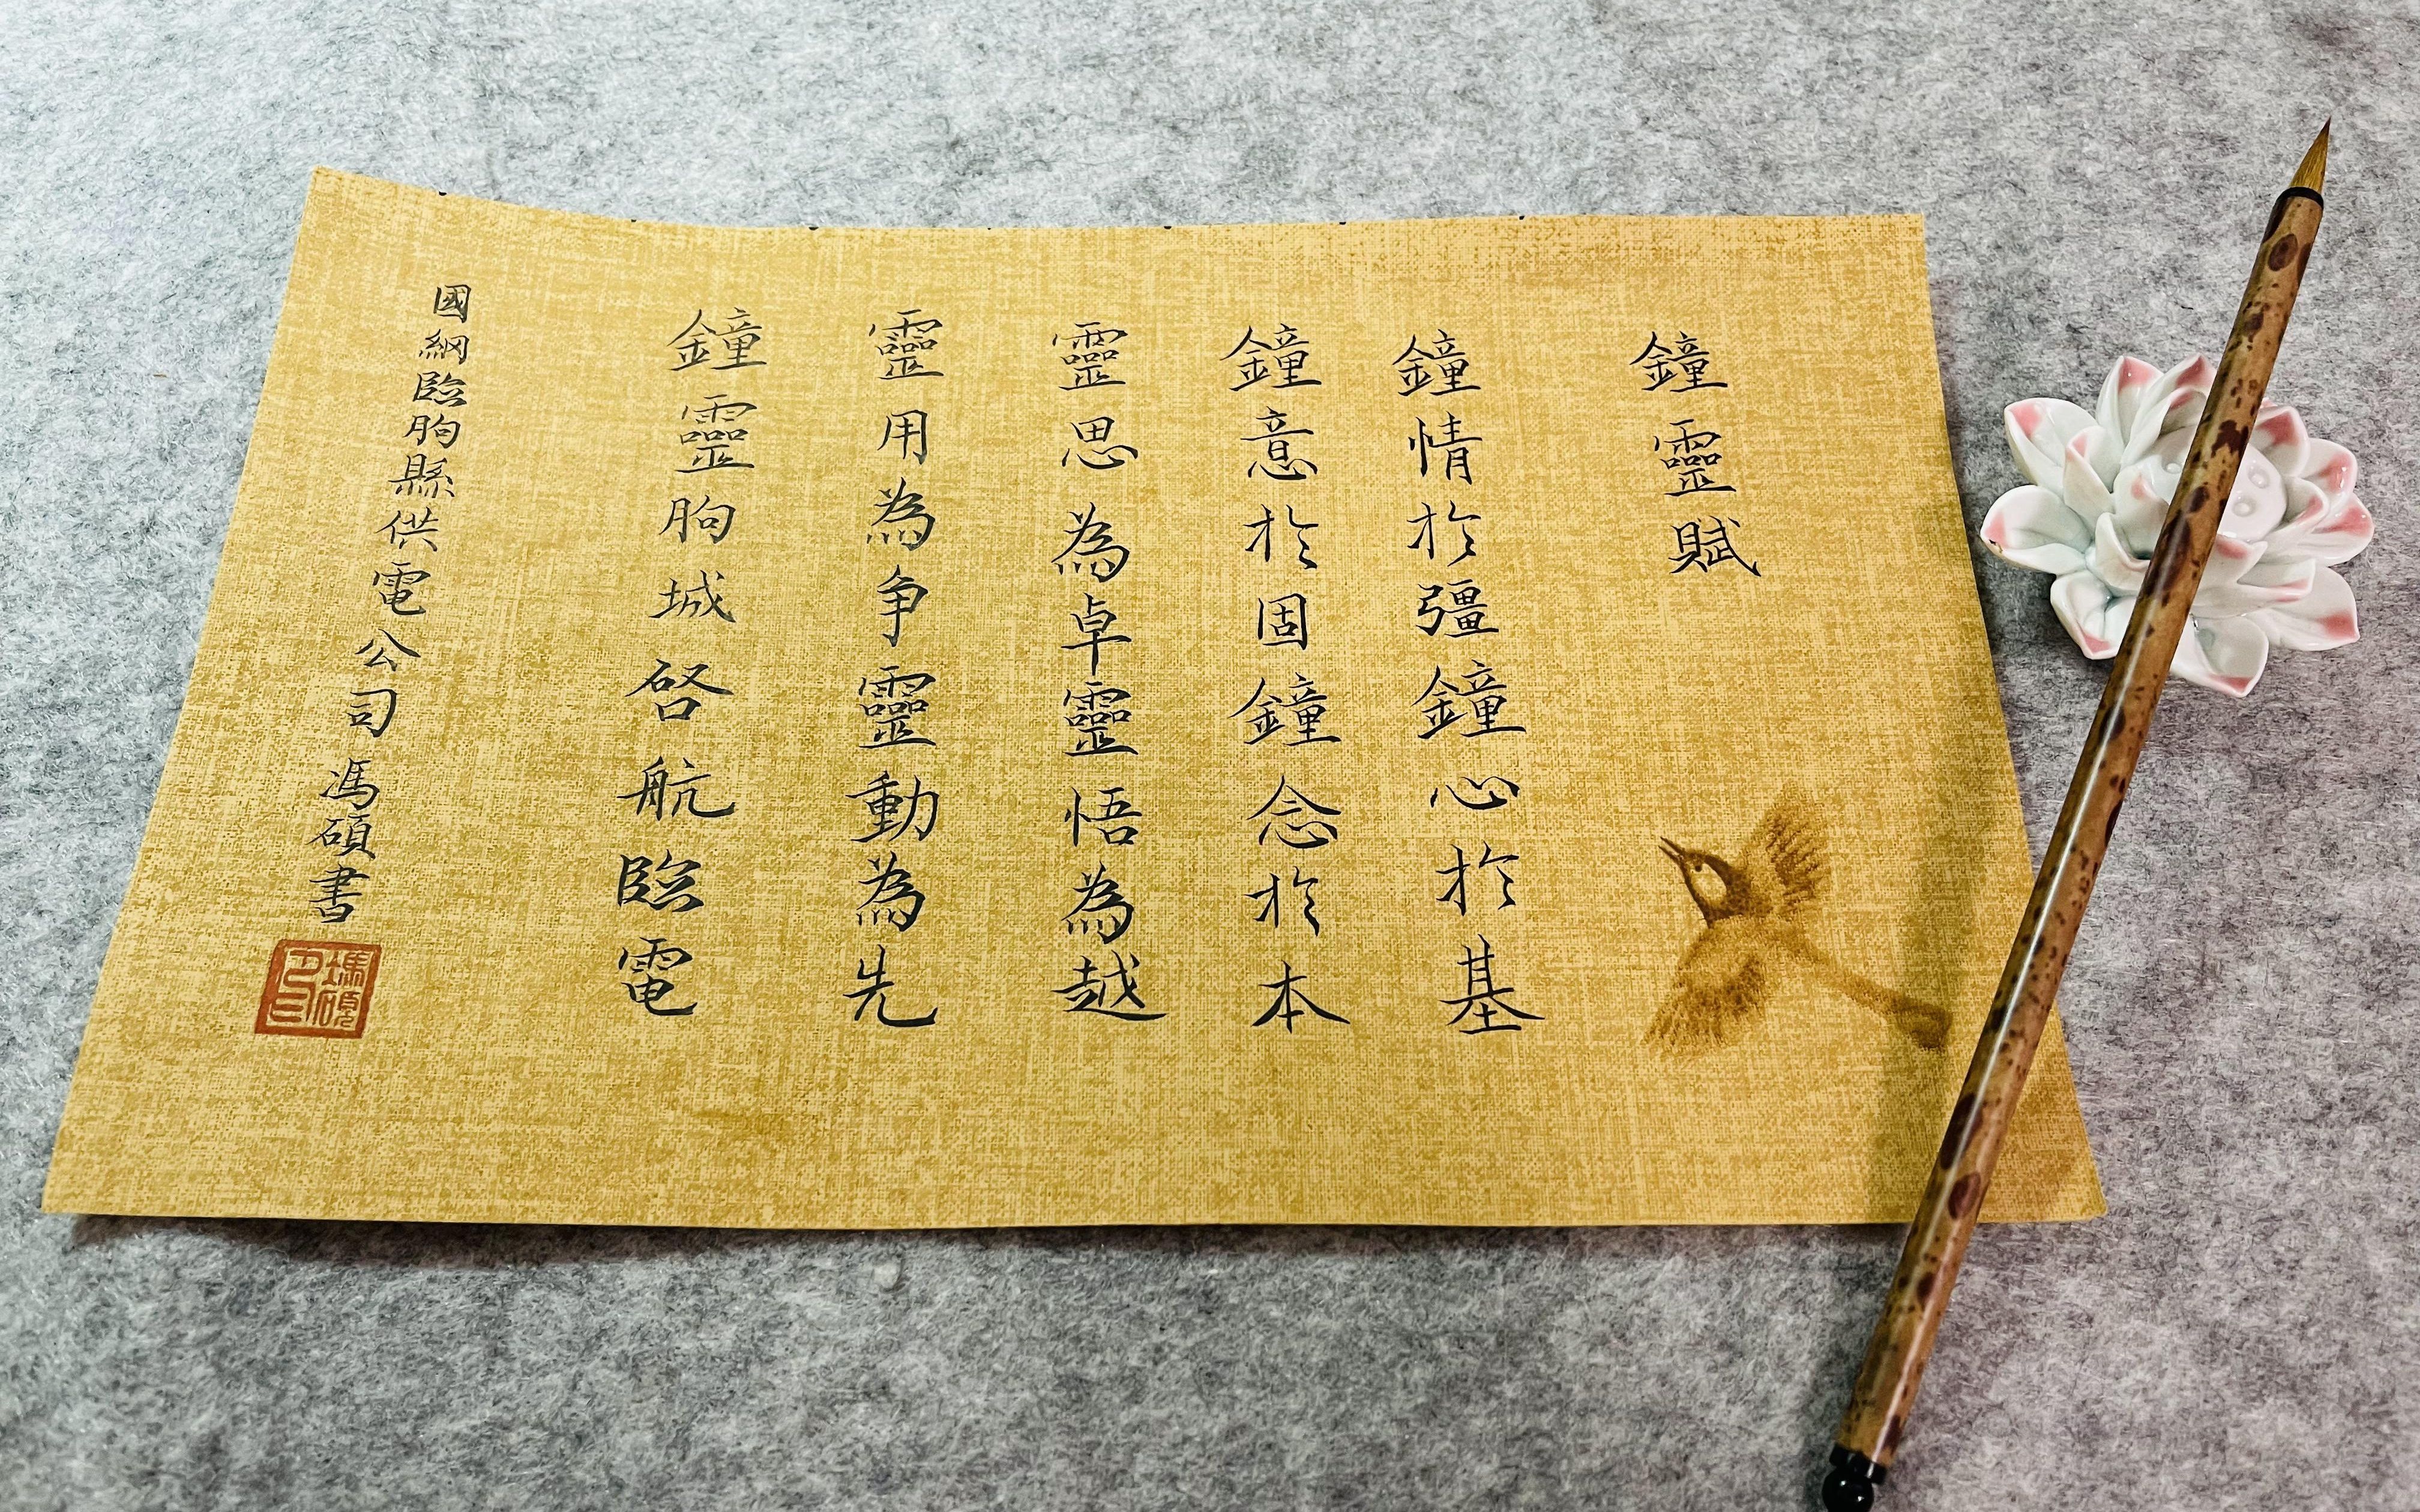 鐘靈賦
鐘情於彊鐘心於基
鐘意於固鐘念於本
靈思為卓靈悟為越
靈用為争靈動為先
鐘靈朐城啓航臨電
國網臨朐縣供電公司馮碩書
馮碩